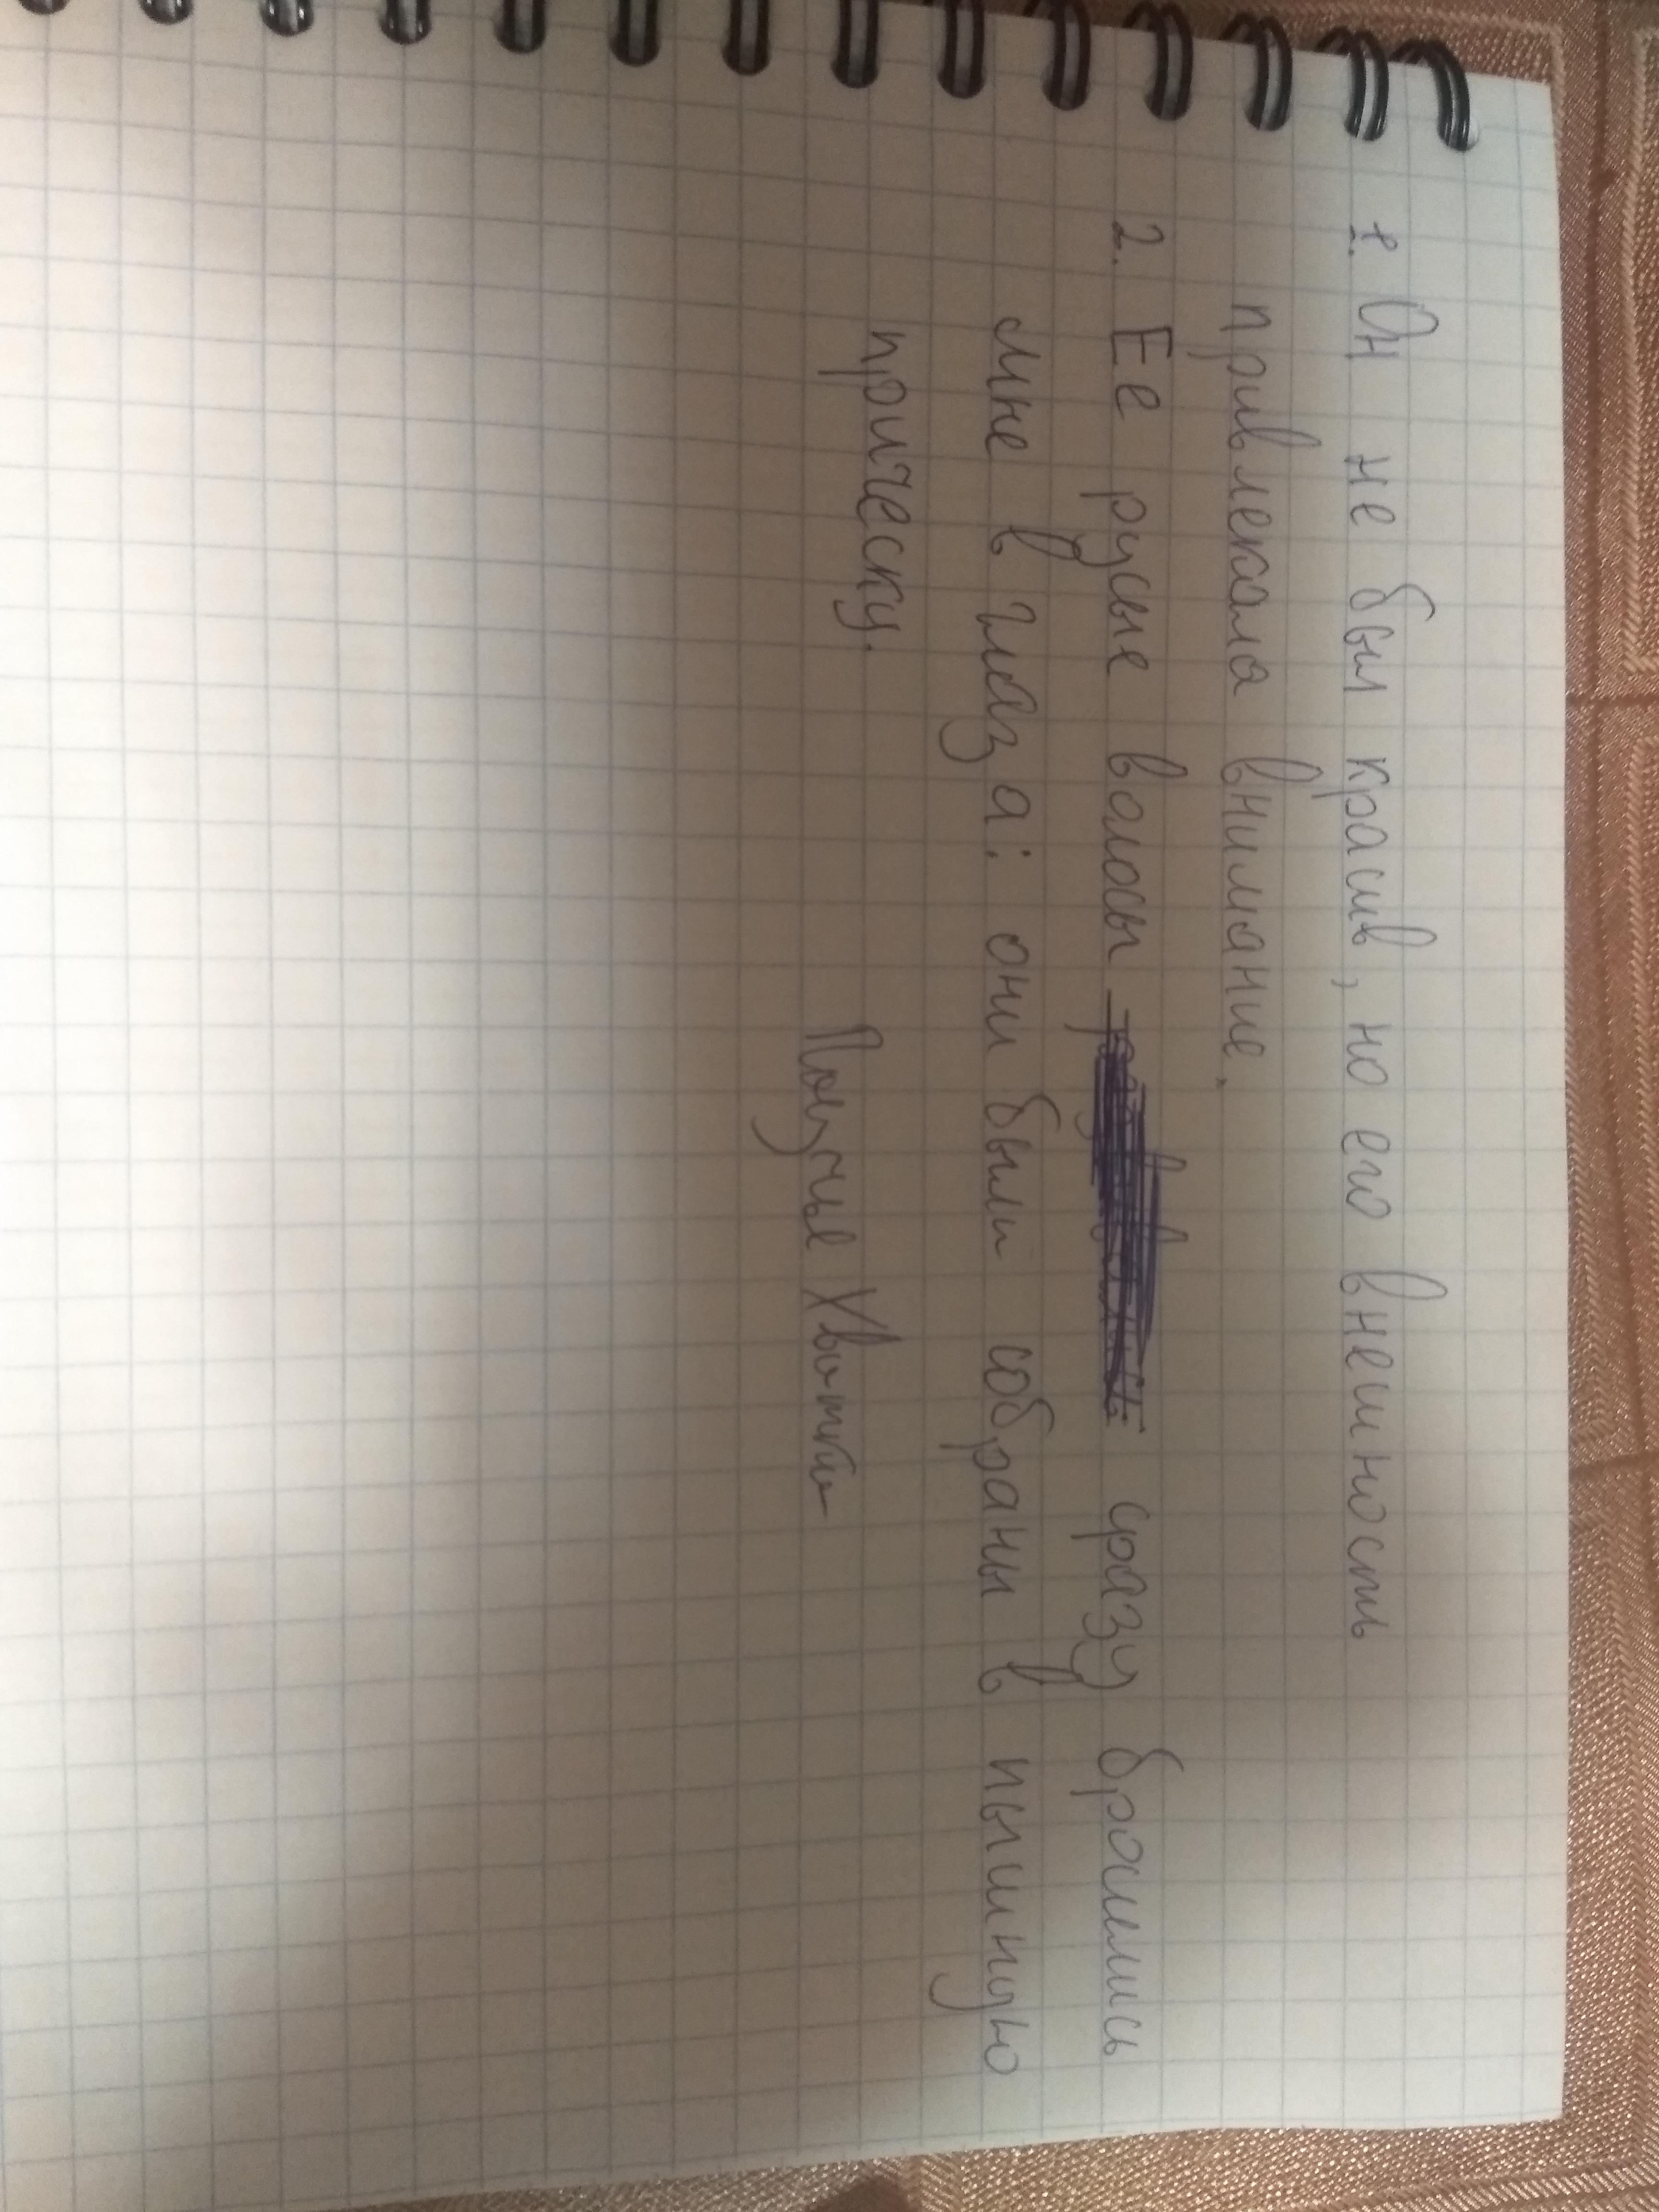 1. Он не был красив, но его внешность
привлекала внимание.
2. Её русые волосы сразу бросились
мне в глаза: они были собраны в пышную
прическу.